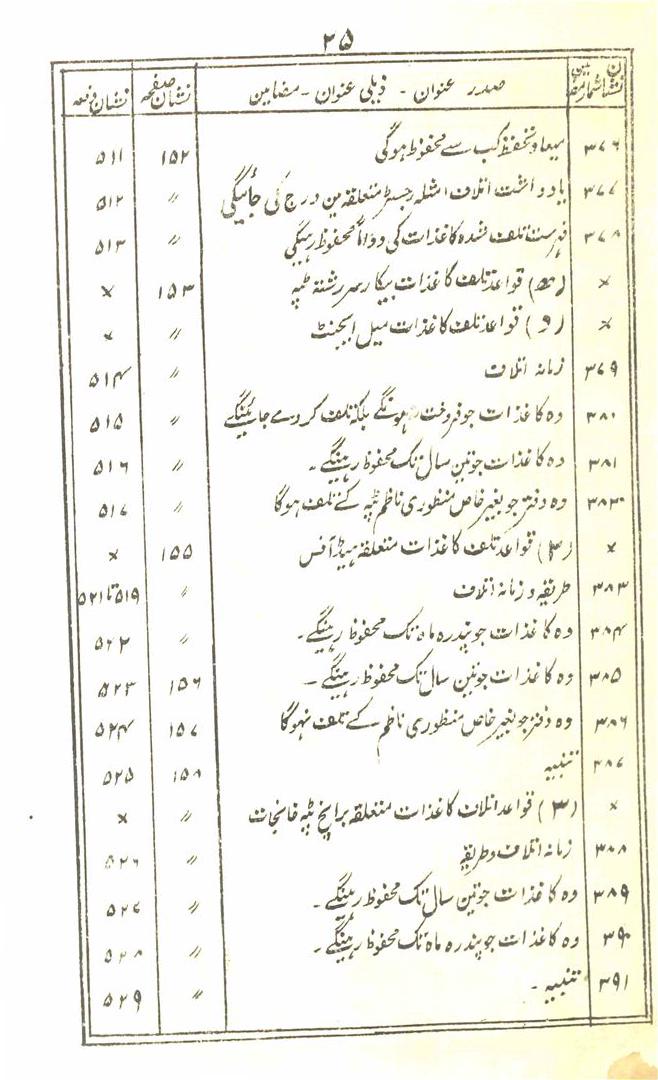 ۲۵
نشان شمار مضمین | صدر عنوان - ذیلی عنوان - مضامین | نشان صفحہ | نشان دفعہ
۳۷۶ | میعاد تحفظ کب سے محفوظ ہوگی | ۱۵۲ | ۵۱۱
۳۷۷ | یادداشت اتلاف امثلہ رجسٹر متعلقہ مین درج کی جائیگی | 〃 | ۵۱۲
۳۷۸ | فہرست تلف شدہ کاغذات کی دواماً محفوظ رہیگی | 〃 | ۵۱۳
× | قواعد تلف کاغذات بیکار سررشتہ ٹپہ | ۱۵۳ | ×
× | (و) قواعد تلف کاغذات میل ایجنٹ | 〃 | ×
۳۷۹ | زمانہ اتلاف | 〃 | ۵۱۴
۳۸۰ | وہ کاغذات جو فروخت نہونگے بلکہ تلف کر دے جائینگے | 〃 | ۵۱۵
۳۸۱ | وہ کاغذات جو تین سال تک محفوظ رہینگے ۔ | 〃 | ۵۱۶
۳۸۲ | وہ دفتر جو بغیر خاص منظوری ناظم ٹپہ کے تلف ہوگا | 〃 | ۵۱۷
× | (۳) قواعد تلف کاغذات متعلقہ ہیڈ آفس | ۱۵۵ | ×
۳۸۳ | طریقہ و زمانہ اتلاف | 〃 | ۵۱۹ تا ۵۲۱
۳۸۴ | وہ کاغذات جو پندرہ ماہ تک محفوظ رہینگے ۔ | 〃 | ۵۲۲
۳۸۵ | وہ کاغذات جو تین سال تک محفوظ رہینگے ۔ | ۱۵۶ | ۵۲۳
۳۸۶ | وہ دفتر جو بغیر خاص منظوری ناظم کے تلف نہوگا | ۱۵۷ | ۵۲۴
۳۸۷ | تنبیہ | ۱۵۸ | ۵۲۵
× | (۳) قواعد اتلاف کاغذات متعلقہ برانچ ٹپہ خانجات | 〃 | ×
۳۸۸ | زمانہ اتلاف و طریقہ | 〃 | ۵۲۶
۳۸۹ | وہ کاغذات جو تین سال تک محفوظ رہینگے ۔ | 〃 | ۵۲۷
۳۹۰ | وہ کاغذات جو پندرہ ماہ تک محفوظ رہینگے ۔ | 〃 | ۵۲۸
۳۹۱ | تنبیہ ۔ | 〃 | ۵۲۹